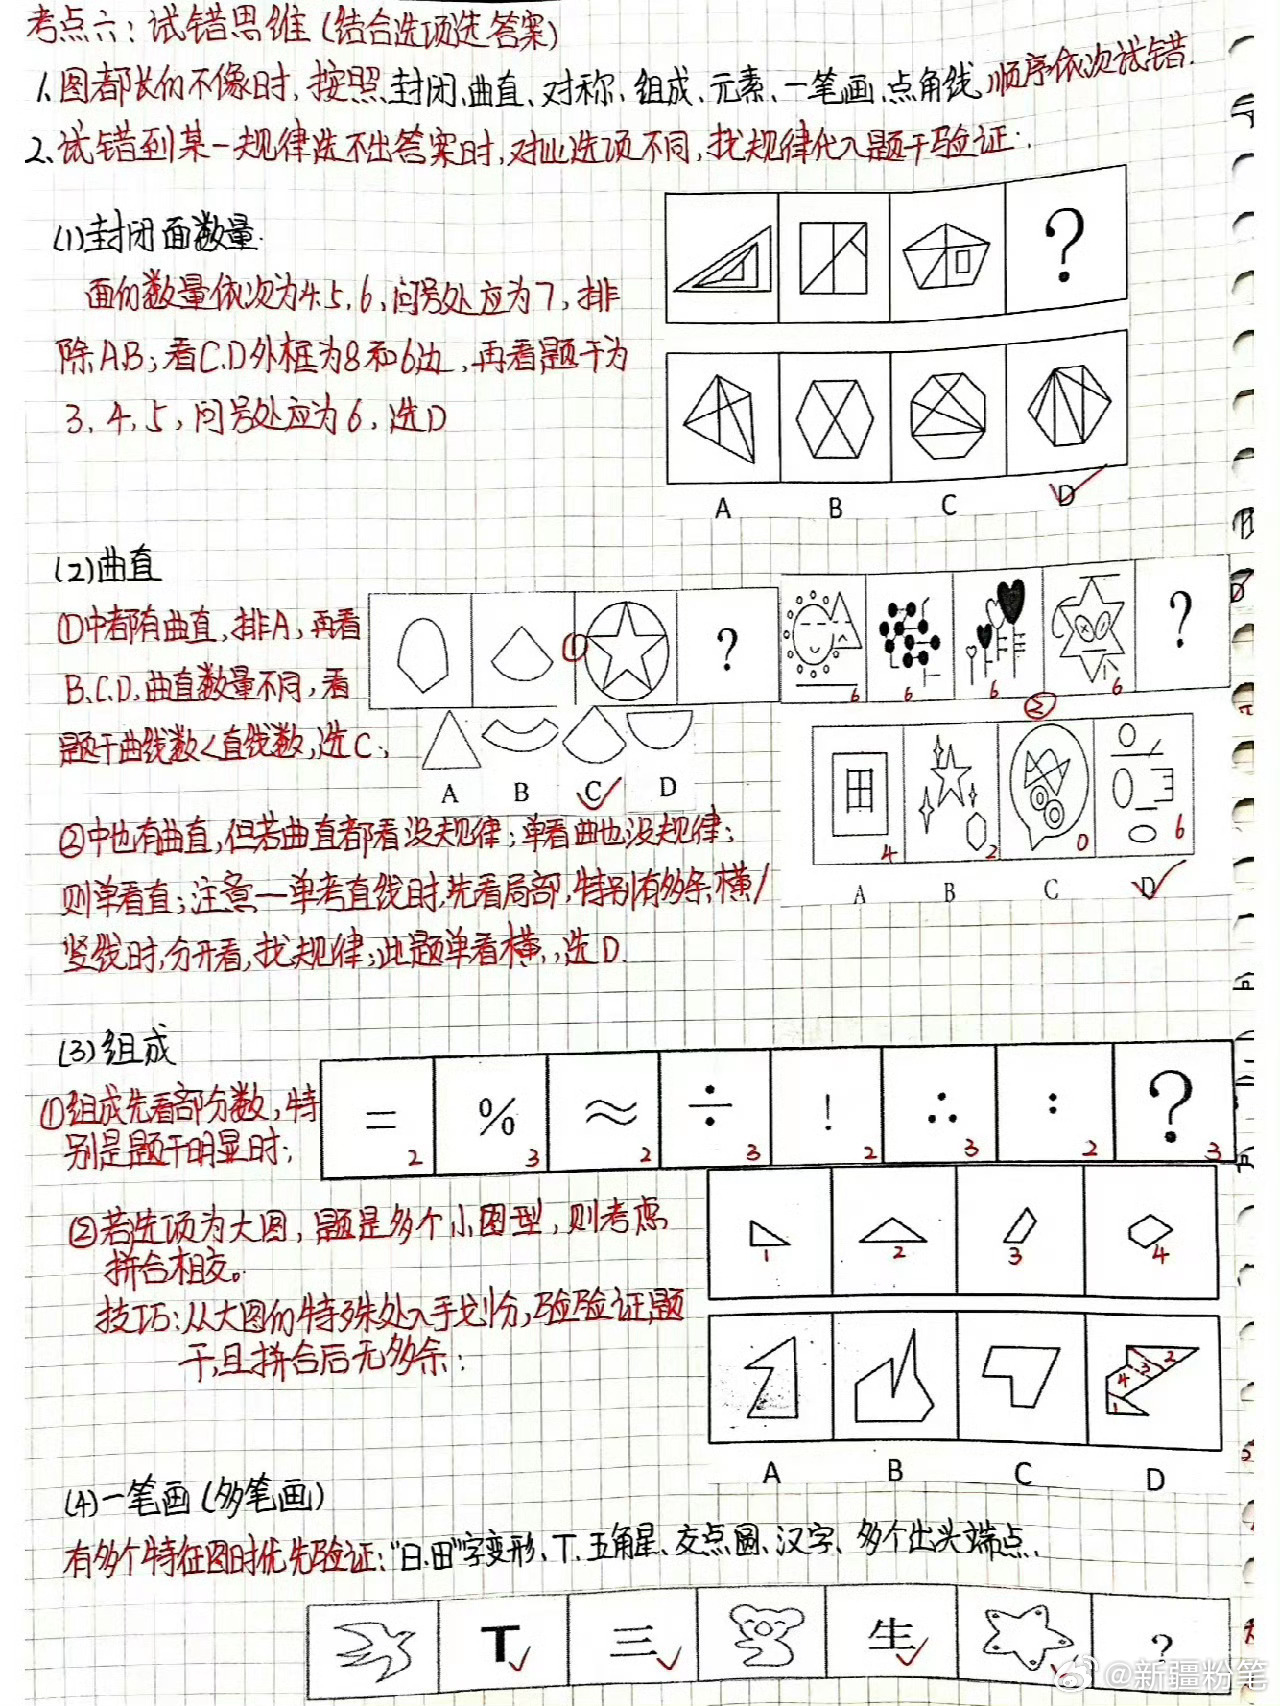 考点六：试错思维（结合选项选答案）
1、图都长的不像时，按照封闭、曲直、对称、组成、元素、一笔画、点角线，顺序依次试错.
2、试错到某一规律选不出答案时，对比选项不同，找规律代入题干验证：
(1)封闭面数量.
面的数量依次为4.5,6,问号处应为7，排
除A.B；看C.D外框为8和6边，再看题干为
3,4,5,问号处应为6,选D
?
A B C D
(2)曲直
①中都有曲直，排A，再看
B.C.D,曲直数量不同，看
题干曲线数<直线数，选C；
① ?
A B C D
6 6 6 6 ?
②
田 4 2 0 6
A B C D
②中也有曲直，但若曲直都看没规律；单看曲也没规律；
则单看直；注意一单考直线时，先看局部，特别有多条横/
竖线时，分开看，找规律；此题单看横，选D.
(3)组成
①组成先看部分数，特
别是题干明显时；
= % ≈ ÷ ! ∴ : ?
2 3 2 3 2 3 2 3
②若选项为大图，题是多个小图型，则考虑
拼合相交。
技巧：从大图的特殊处入手划分，验验证题
干，且拼合后无多余；
1 2 3 4
4 3 2
1
A B C D
(4)一笔画（多笔画）
有多个特征图时优先验证：“日.田”字变形、T、五角星、交点圆、汉字、多个出头端点.
T 三 生 ?
@新疆粉笔